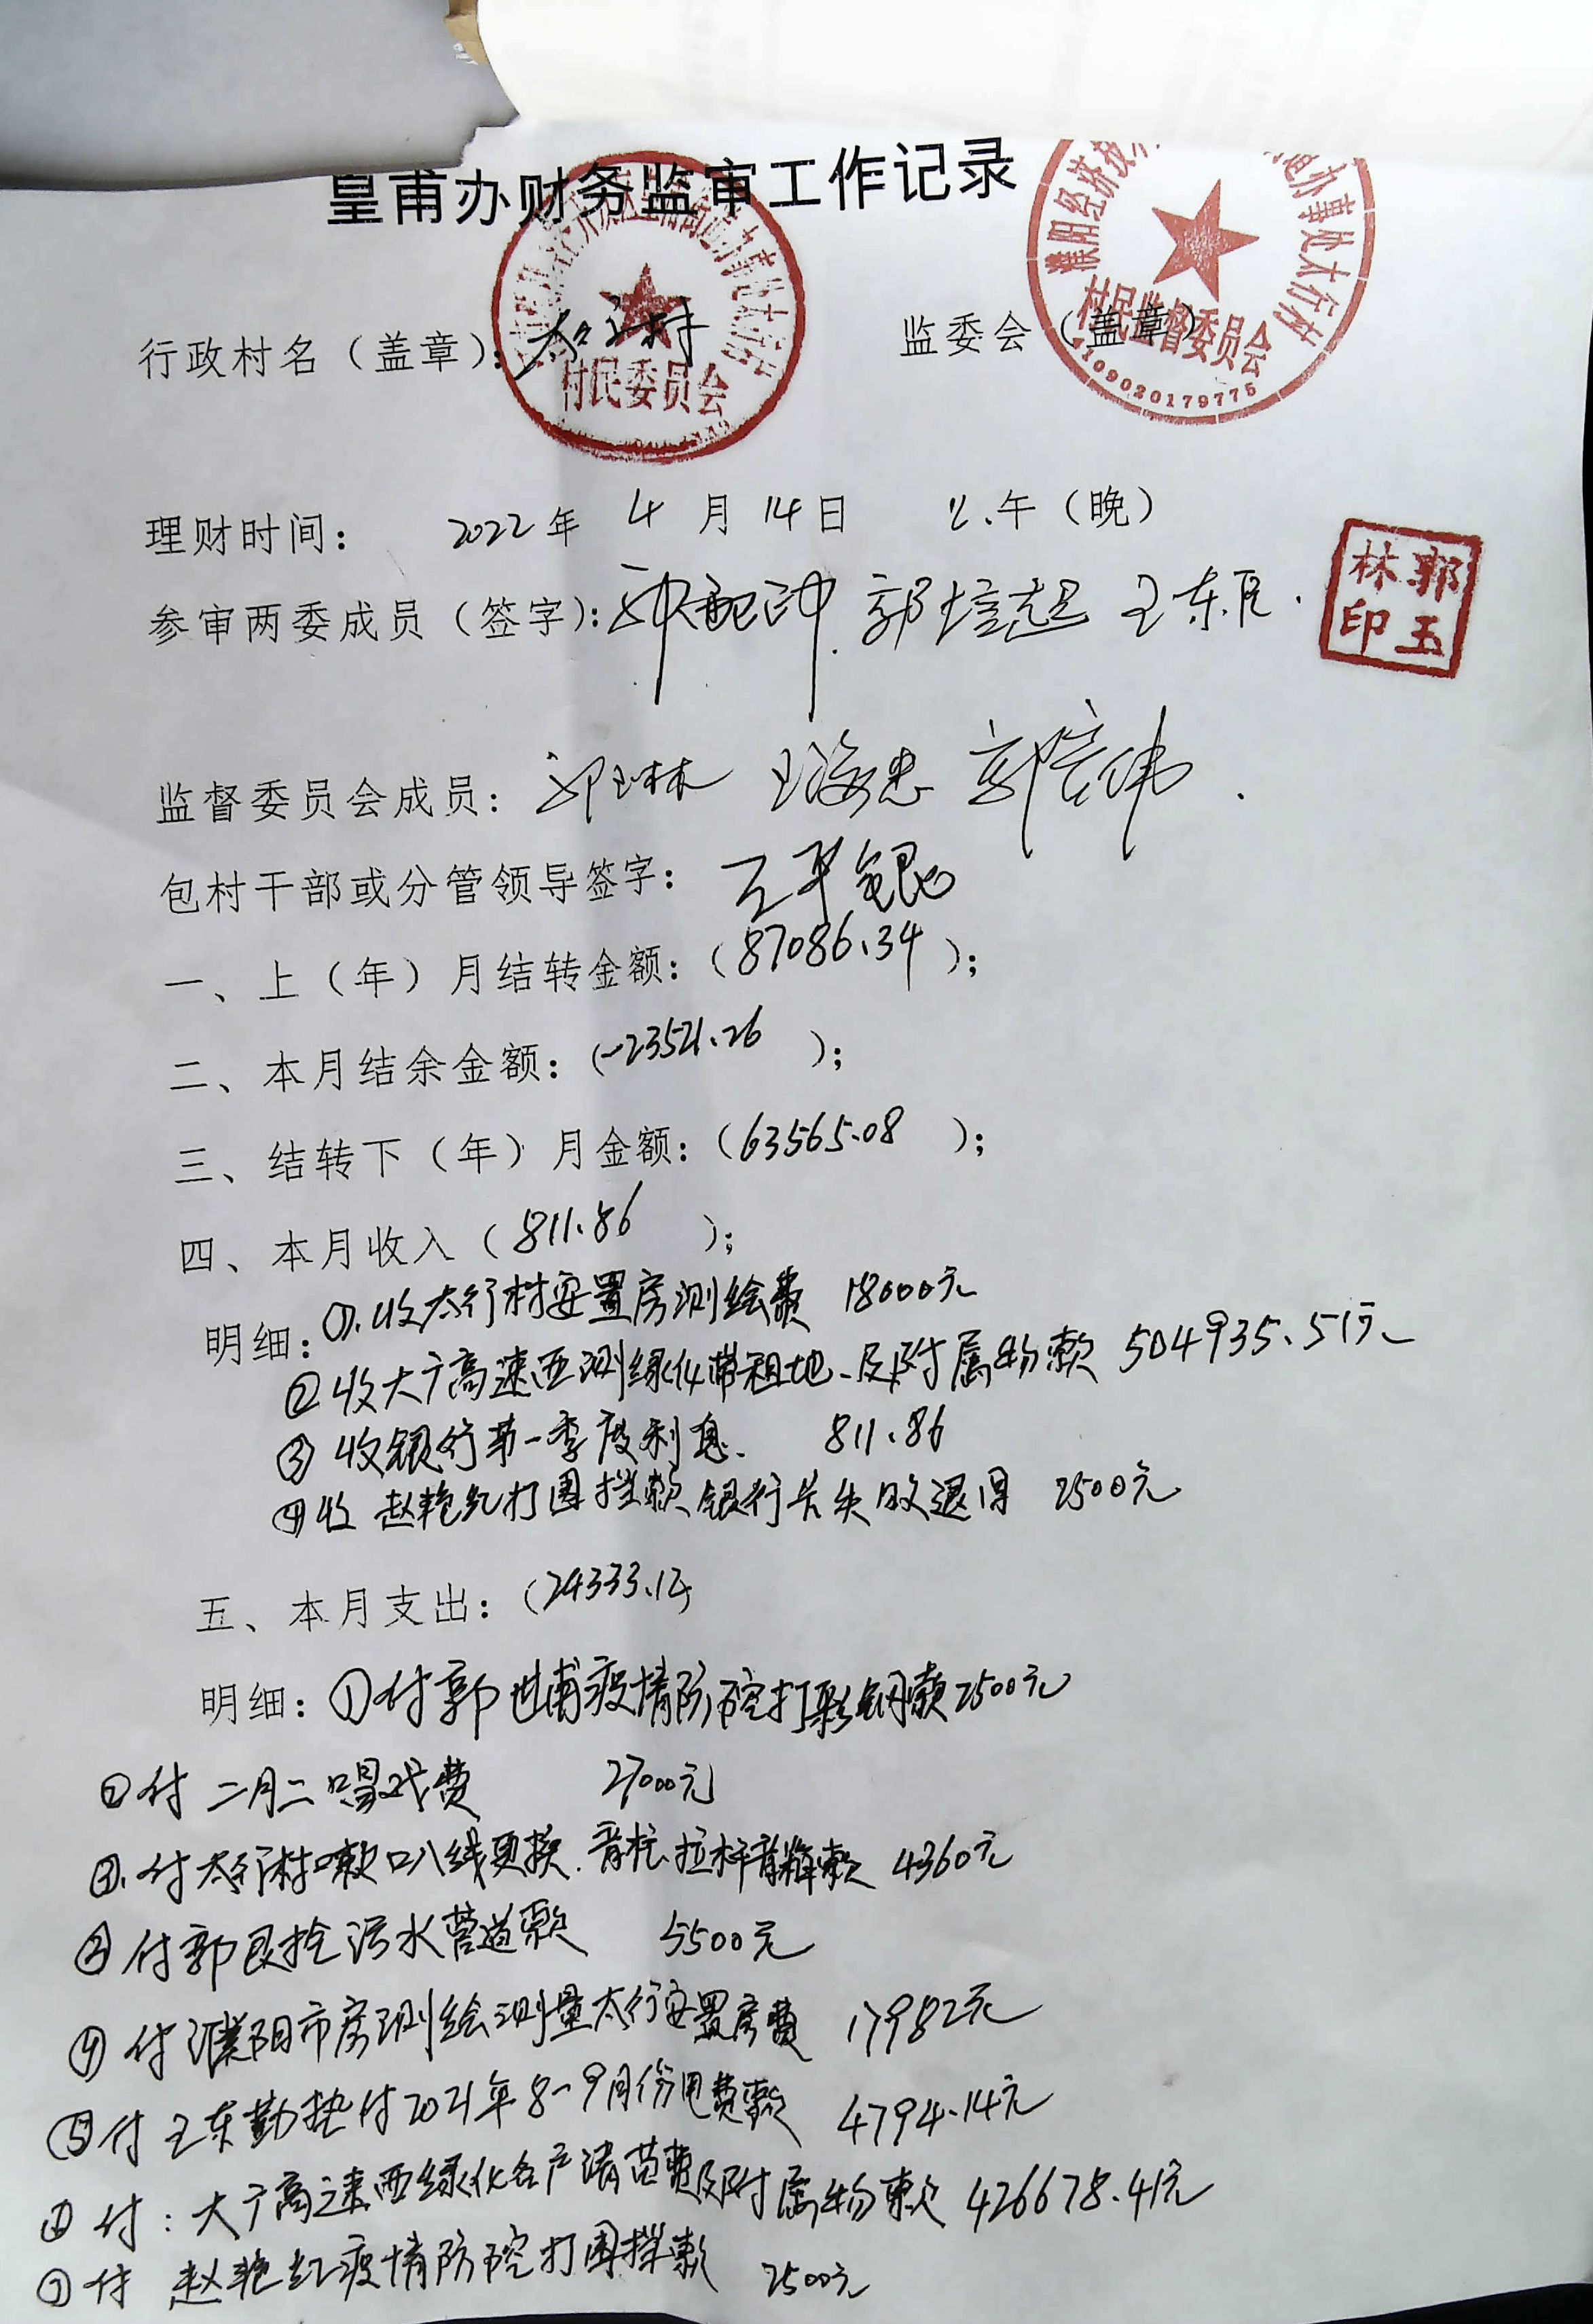 皇甫办财务监审工作记录
行政村名（盖章）：太行村
村民委员会
监委会（盖章）
濮阳经济技 道办事处太行村
村民监督委员会
4109020179775
理财时间： 2022年 4 月 14日 午（晚）
参审两委成员（签字）： 郭培起 王东臣
郭玉林印
监督委员会成员：郭玉林 王海忠 郭宗伟
包村干部或分管领导签字：
一、上（年）月结转金额：（87086.34 ）；
二、本月结余金额：（-23521.26 ）；
三、结转下（年）月金额：（63565.08 ）；
四、本月收入（811.86 ）；
明细：①.收太行村安置房测绘费 18000元
②收大广高速西测绿化带租地、及附属物款 504935.51元
③收银行第一季度利息. 811.86
④收 赵艳红打围挡款银行卡失败退回 2500元
五、本月支出：（24333.12）
明细：①付郭世甫疫情防控打彩钢款2500元
②付 二月二唱戏费 27000元
③.付太行村喇叭线更换.音柱.拉杆音箱款 4360元
付郭良拴污水管道款 5500元
付濮阳市房测绘测量太行安置房费 17982元
⑤付 王东勤垫付2021年8-9月份电费款 4794.14元
付：大广高速西绿化各户清苗费及附属物款 426678.41元
付 赵艳红疫情防控打围挡款 2500元